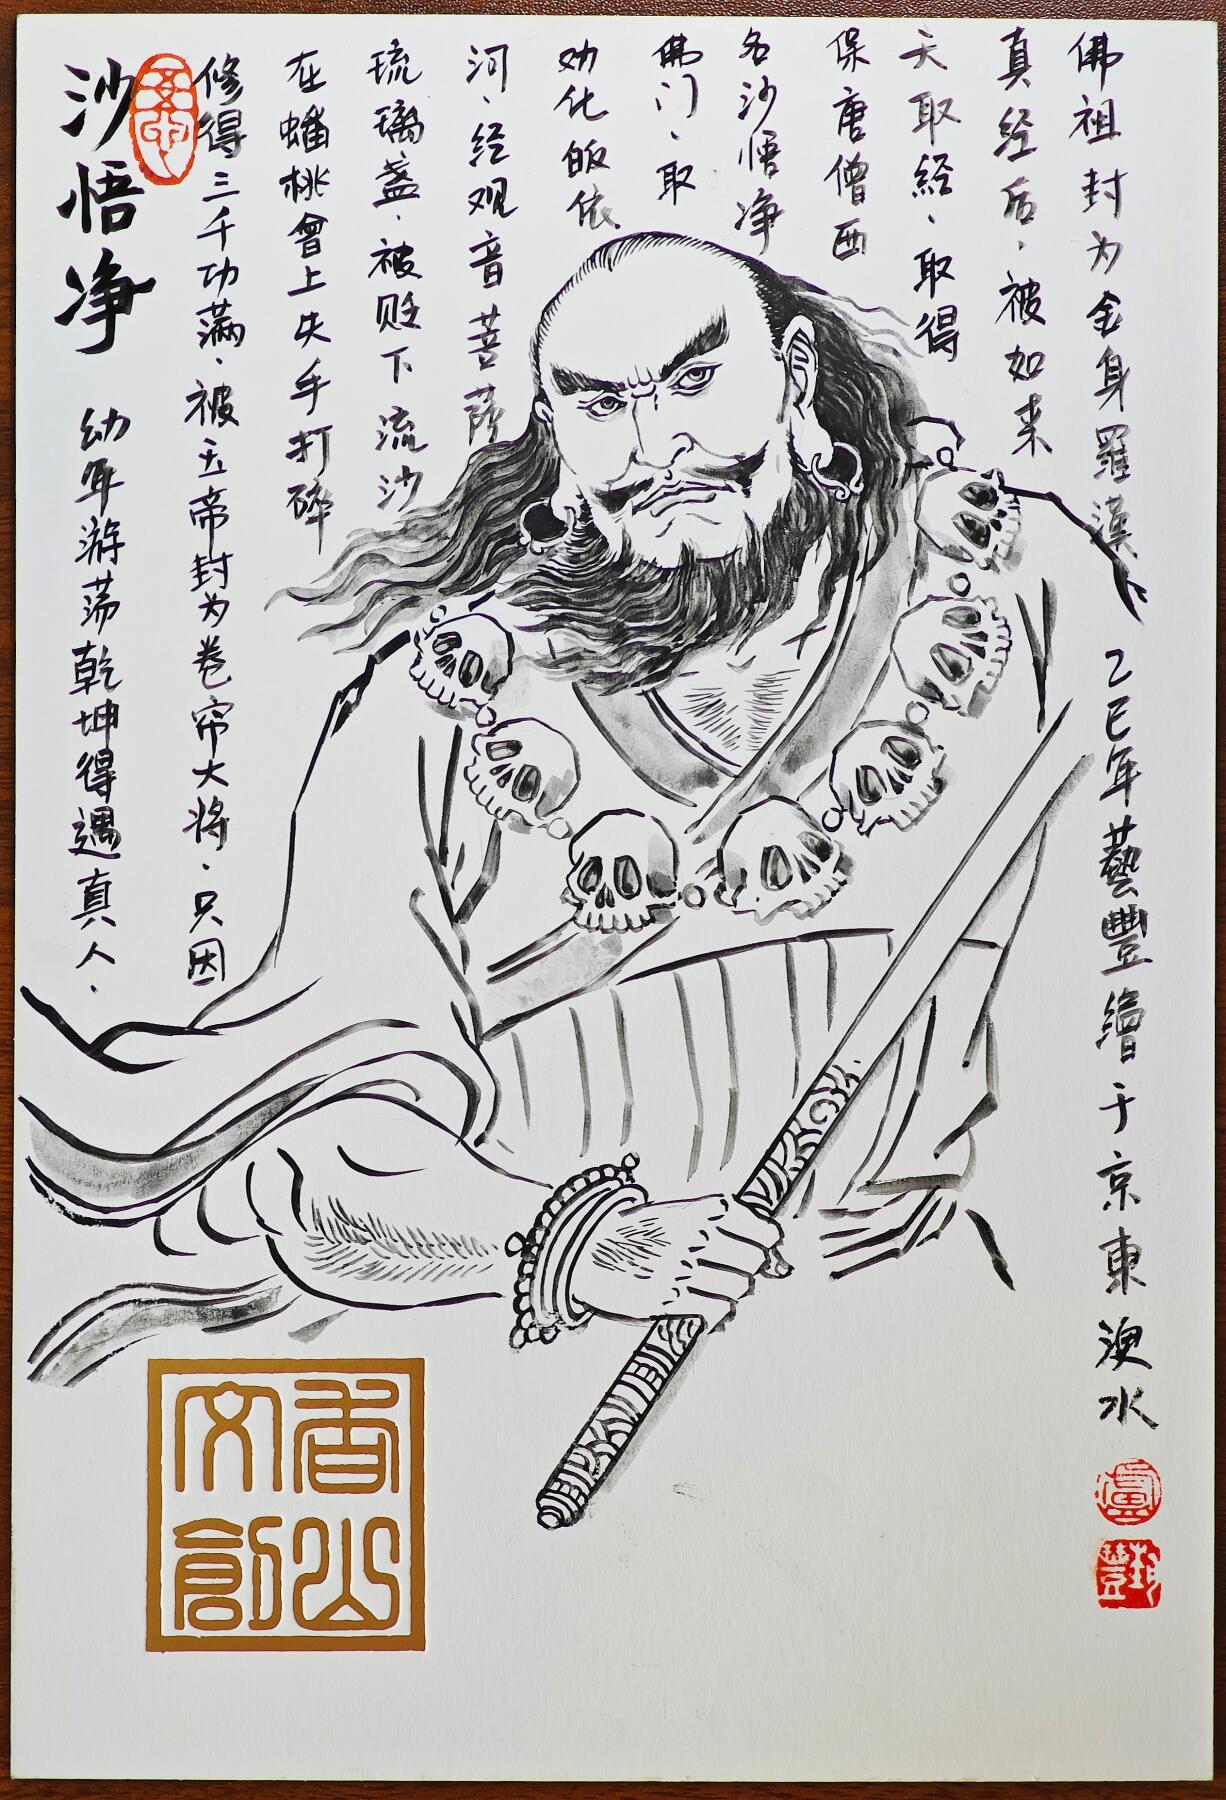 沙悟净
幼年游荡乾坤得遇真人、
修得三千功满、被玉帝封为卷帘大将、只因
在蟠桃會上失手打碎
琉璃盏、被贬下流沙
河、经观音菩萨
劝化皈依
佛门、取
名沙悟净
保唐僧西
天取经、取得
真经后、被如来
佛祖封为金身羅漢
乙巳年藝豐繪于京東水
盧
香山
文創